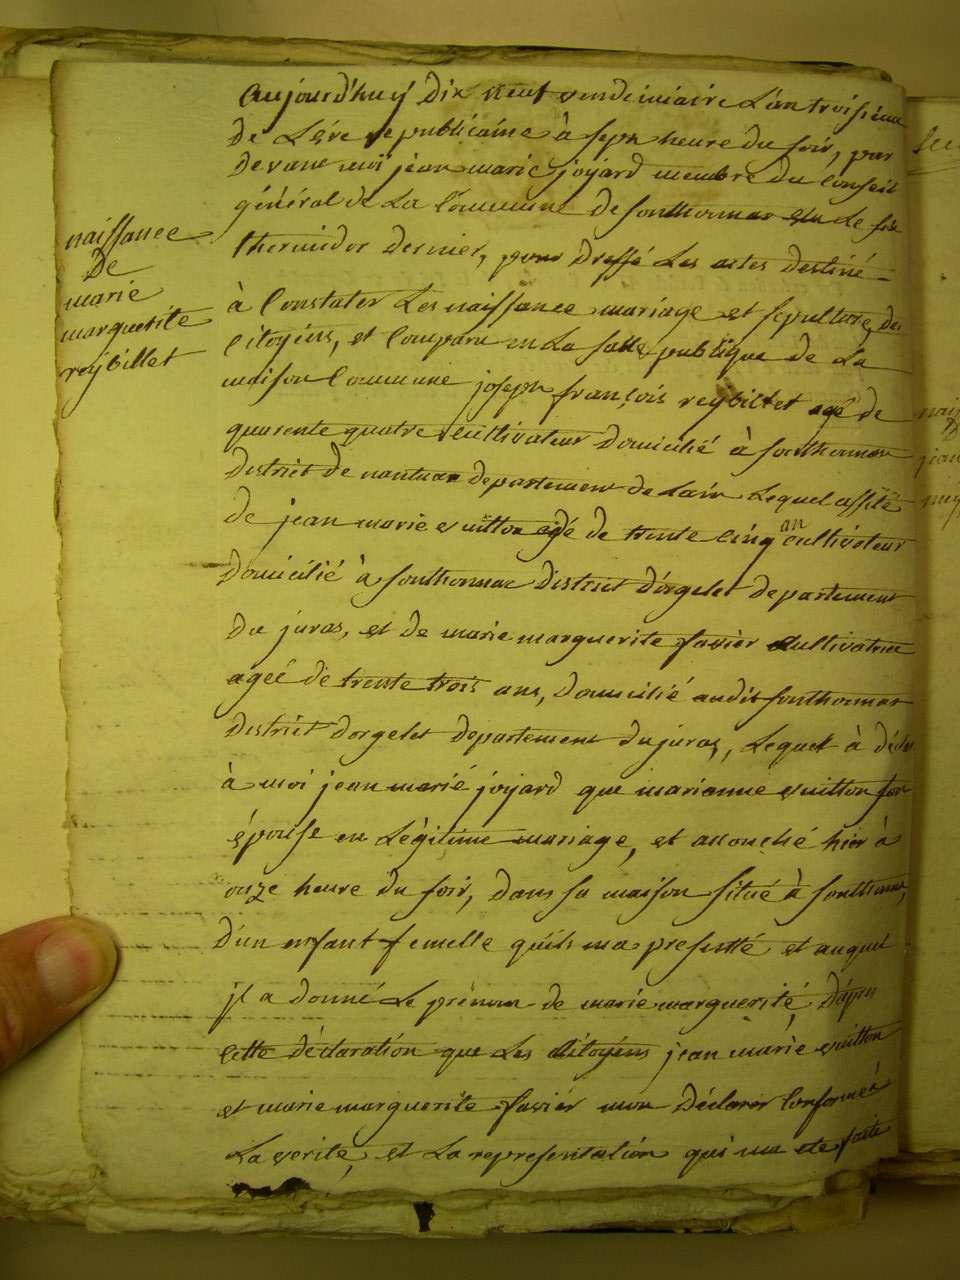 naissance
de
marie
marguerite
reybillet
aujourd'huy dix neuf vendemiaire L'an troisieme
de L'ére republicaine à sept heure du soir, par
devant moi jean marie joyard membre du Conseil
général de La Commune de sonthonnax elu Le six
thermidor dernier, pour dressé Les actes destiné
à Constater Les naissance mariage et sepulture des
Citoyens, et Comparu en La salle publique de La
maison Commune joseph françois reybillet agé de
quarente quatre cultivateur domicilié à sonthonnax
district de nantua departement de Lain Lequel assité
de jean marie vuitton agé de trente cinq an cultivateur
domicilié à sonthonnax district d'orgelet departement
du juras, et de marie marguerite favier Cultivatrice
ageé de trente trois ans, domicilié audit sonthonnax
district dorgelet departement du juras, Lequel à déclaré
à moi jean marié joyard que marianne vuitton son
épouse en Légitime mariage, et accouché hier à
onze heure du soir, dans sa maison situé à sonthonnax,
d'un enfant femelle quils ma presentté et auquel
jl a donné Le prénom de marie marguerité, dápres
cette déclaration que Les Citoyens jean marie vuitton
et marie marguerite favier mon déclarer Conforme à
La verité, et La representation qui ma ete faite